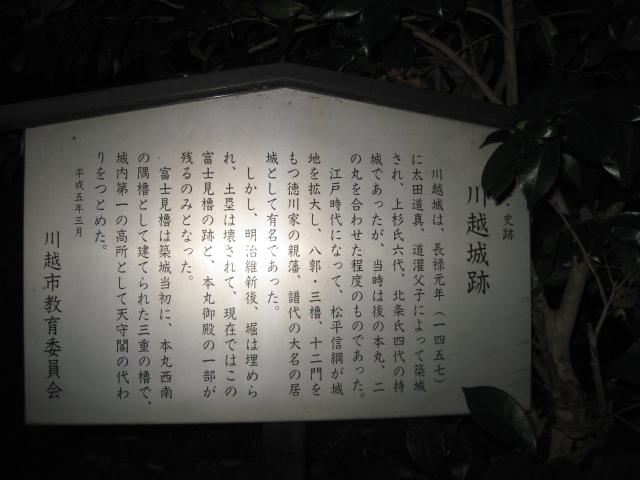 ・史跡
川越城跡
川越城は、長禄元年（一四五七）
に太田道真、道灌父子によって築城
され、上杉氏六代、北条氏四代の持
城であったが、当時は後の本丸、二
の丸を合わせた程度のものであった。
江戸時代になって、松平信綱が城
地を拡大し、八郭・三櫓、十二門を
もつ徳川家の親藩、譜代の大名の居
城として有名であった。
しかし、明治維新後、堀は埋めら
れ、土塁は壊されて、現在ではこの
富士見櫓の跡と、本丸御殿の一部が
残るのみとなった。
富士見櫓は築城当初に、本丸西南
の隅櫓として建てられた三重の櫓で、
城内第一の高所として天守閣の代わ
りをつとめた。
平成五年三月
川越市教育委員会